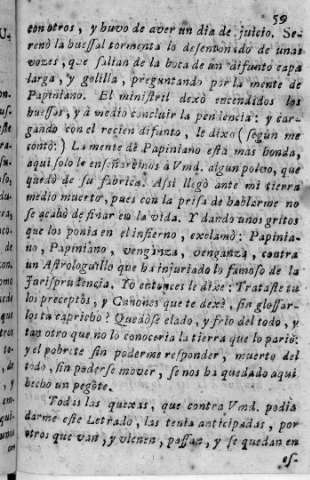 59
con otros, y huvo de aver un dia de juicio. Se-
renò la huessal tormenta lo desentonado de unas
vozes, que salian de la boca de un difunto capa
larga, y golilla, preguntando por la mente de
Papiniano. El ministril dexò encendidos los
huessos, y à medio concluir la pendencia: y car-
gando con el recien difunto, le dixo (segun me
contò:) La mente de Papiniano està mas honda,
aqui solo le enseñarèmos à Vmd. algun polvo, que
quedò de su fabrica. Assi llegò ante mi tierra
medio muerto, pues con la prisa de hablarme no
se acabò de finar en la vida. Y dando unos gritos
que los ponia en el infierno, exclamò: Papinia-
no, Papiniano, venganza, venganza, contra
un Astrologuillo que ha injuriado lo famoso de la
Jurisprudencia. Yo entonces le dixe: Trataste tu
los preceptos, y Canones que te dexò, sin glossar-
los tu capricho? Quedòse elado, y frio del todo, y
tan otro que no lo conoceria la tierra que lo pariò:
y el pobrete sin poderme responder, muerto del
todo, sin poderse mover, se nos ha quedado aqui
hecho un pegote.
Todas las quexas, que contra Vmd. podia
darme este Letrado, las tenia anticipadas, por
otros que van, y vienen, passan, y se quedan en
es-